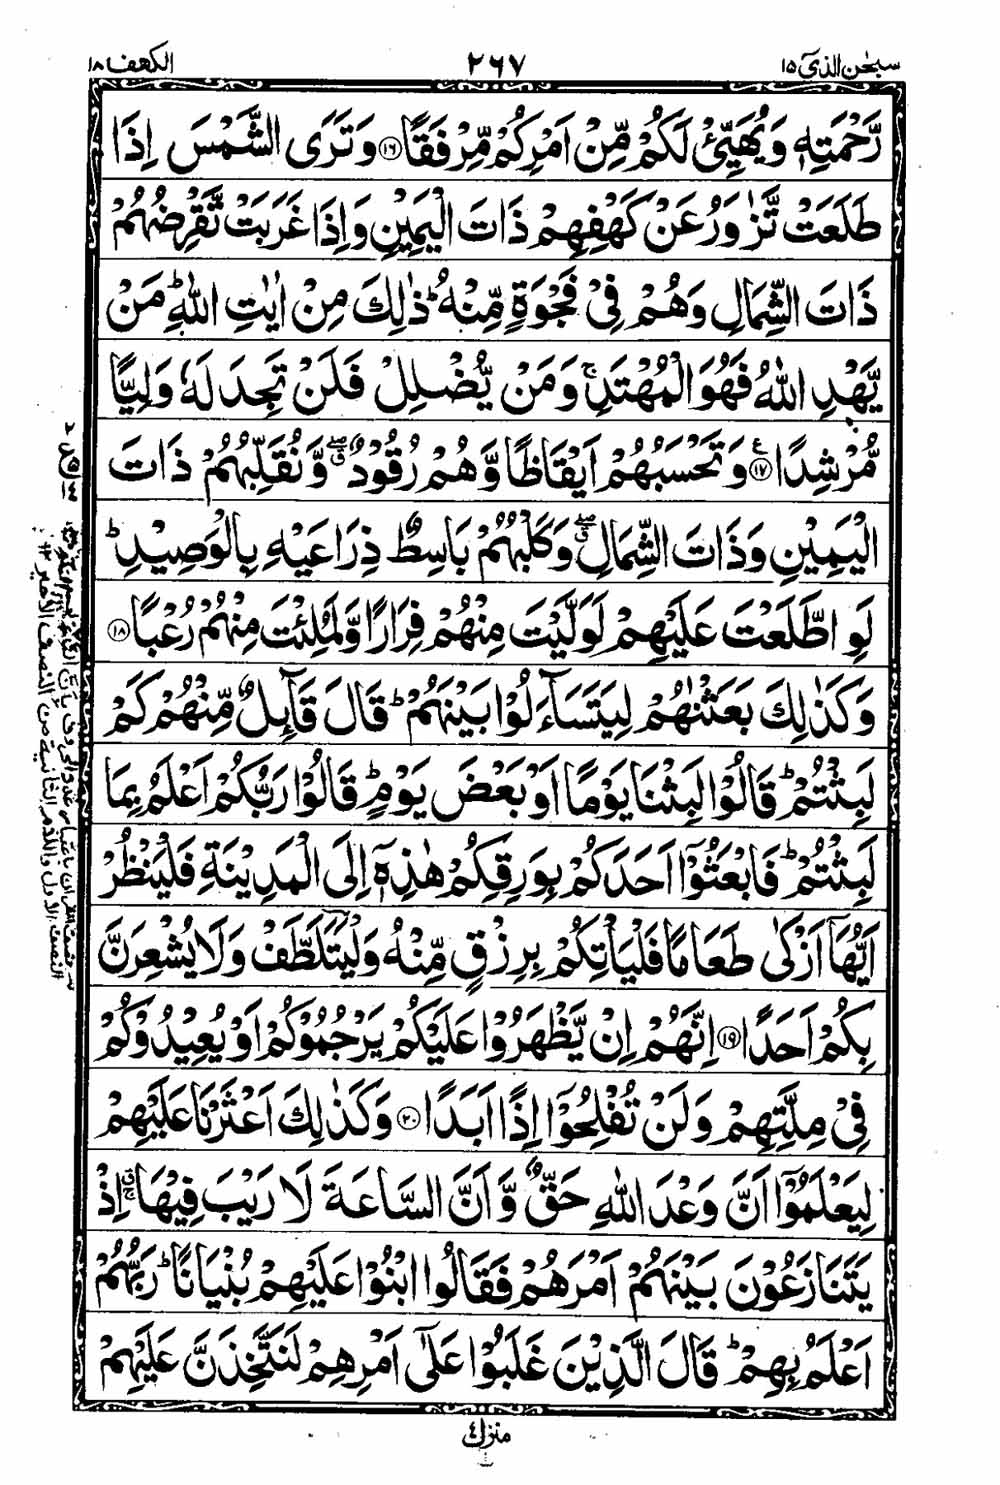 سبحٰن الذی ١٥
٢٦٧
الکهف ١٨
رَّحْمَتِهٖ وَيُهَيِّئْ لَكُمْ مِّنْ اَمْرِكُمْ مِّرْفَقًا ﴿١٦﴾ وَتَرَى الشَّمْسَ اِذَا
طَلَعَتْ تَّزٰوَرُ عَنْ كَهْفِهِمْ ذَاتَ الْيَمِيْنِ وَاِذَا غَرَبَتْ تَّقْرِضُهُمْ
ذَاتَ الشِّمَالِ وَهُمْ فِيْ فَجْوَةٍ مِّنْهُ ؕ ذٰلِكَ مِنْ اٰيٰتِ اللّٰهِ ؕ مَنْ
يَّهْدِ اللّٰهُ فَهُوَ الْمُهْتَدِ ۚ وَمَنْ يُّضْلِلْ فَلَنْ تَجِدَ لَهٗ وَلِيًّا
مُّرْشِدًا ﴿١٧﴾ ع وَتَحْسَبُهُمْ اَيْقَاظًا وَّهُمْ رُقُوْدٌ ۖق وَّنُقَلِّبُهُمْ ذَاتَ
الْيَمِيْنِ وَذَاتَ الشِّمَالِ ۖق وَكَلْبُهُمْ بَاسِطٌ ذِرَاعَيْهِ بِالْوَصِيْدِ ؕ
لَوِ اطَّلَعْتَ عَلَيْهِمْ لَوَلَّيْتَ مِنْهُمْ فِرَارًا وَّلَمُلِئْتَ مِنْهُمْ رُعْبًا ﴿١٨﴾
وَكَذٰلِكَ بَعَثْنٰهُمْ لِيَتَسَآءَلُوْا بَيْنَهُمْ ؕ قَالَ قَآئِلٌ مِّنْهُمْ كَمْ
لَبِثْتُمْ ؕ قَالُوْا لَبِثْنَا يَوْمًا اَوْ بَعْضَ يَوْمٍ ؕ قَالُوْا رَبُّكُمْ اَعْلَمُ بِمَا
لَبِثْتُمْ ؕ فَابْعَثُوْٓا اَحَدَكُمْ بِوَرِقِكُمْ هٰذِهٖٓ اِلَى الْمَدِيْنَةِ فَلْيَنْظُرْ
اَيُّهَآ اَزْكٰى طَعَامًا فَلْيَاْتِكُمْ بِرِزْقٍ مِّنْهُ وَلْيَتَلَطَّفْ وَلَا يُشْعِرَنَّ
بِكُمْ اَحَدًا ﴿١٩﴾ اِنَّهُمْ اِنْ يَّظْهَرُوْا عَلَيْكُمْ يَرْجُمُوْكُمْ اَوْ يُعِيْدُوْكُمْ
فِيْ مِلَّتِهِمْ وَلَنْ تُفْلِحُوْٓا اِذًا اَبَدًا ﴿٢٠﴾ وَكَذٰلِكَ اَعْثَرْنَا عَلَيْهِمْ
لِيَعْلَمُوْٓا اَنَّ وَعْدَ اللّٰهِ حَقٌّ وَّاَنَّ السَّاعَةَ لَا رَيْبَ فِيْهَا ۚق اِذْ
يَتَنَازَعُوْنَ بَيْنَهُمْ اَمْرَهُمْ فَقَالُوا ابْنُوْا عَلَيْهِمْ بُنْيَانًا ؕ رَبُّهُمْ
اَعْلَمُ بِهِمْ ؕ قَالَ الَّذِيْنَ غَلَبُوْا عَلٰٓى اَمْرِهِمْ لَنَتَّخِذَنَّ عَلَيْهِمْ
منزل ٤